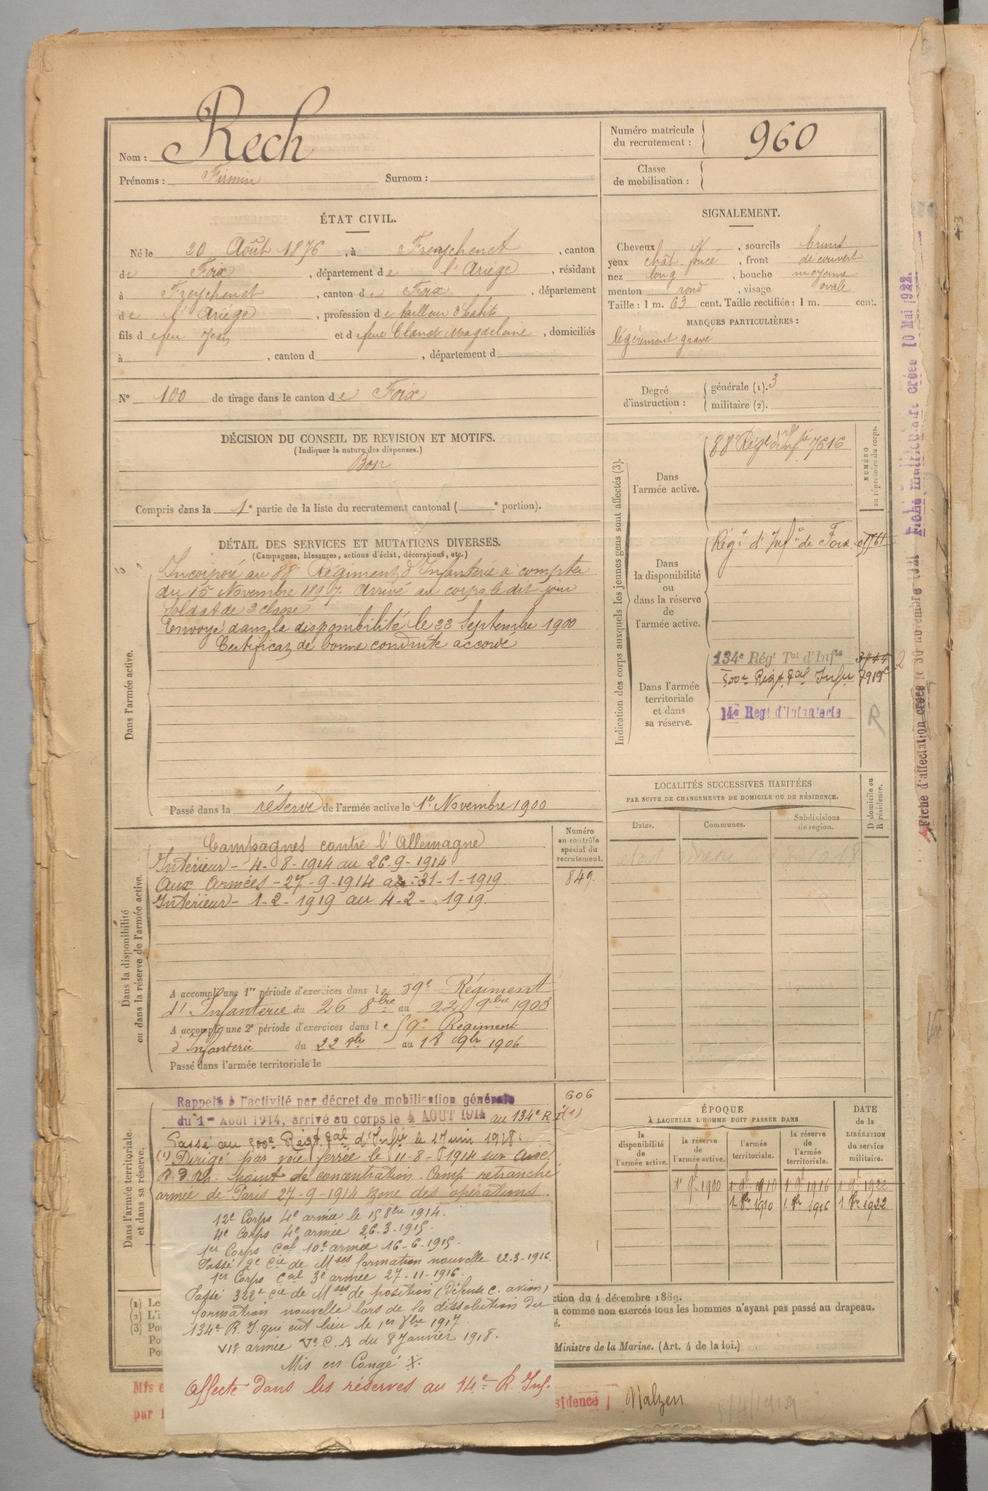 Nom : Rech
Prénoms : Firmin Surnom :
Numéro matricule du recrutement : 960
Classe de mobilisation :
ÉTAT CIVIL.
Né le 20 Août 1876, à Freychenet, canton
de Foix, département de l'Ariège, résidant
à Freychenet, canton de Foix, département
de l'Ariège, profession de tailleur d'habits
fils de feu Jean et de feue Claret Magdelaine, domiciliés
à , canton d , département d
N° 100 de tirage dans le canton de Foix
SIGNALEMENT.
Cheveux N , sourcils bruns
yeux chât. foncé , front découvert
nez long , bouche moyenne
menton rond , visage ovale
Taille : 1 m. 63 cent. Taille rectifiée : 1 m. cent.
MARQUES PARTICULIÈRES :
légèrement gravé
Degré d'instruction : générale (1). 3
militaire (2).
DÉCISION DU CONSEIL DE REVISION ET MOTIFS.
(Indiquer la nature des dispenses.)
Bon
Compris dans la 1e partie de la liste du recrutement cantonal ( e portion).
DÉTAIL DES SERVICES ET MUTATIONS DIVERSES.
(Campagnes, blessures, actions d'éclat, décorations, etc.)
Dans l'armée active.
Incorporé au 88e Régiment d'Infanterie à compter
du 15 Novembre 1897 Arrivé au corps le dit jour
soldat de 2 classe
Envoyé dans la disponibilité le 22 Septembre 1900
Certificat de bonne conduite accordé
Passé dans la réserve de l'armée active le 1er Novembre 1900
Indication des corps auxquels les jeunes gens sont affectés (3).
NUMÉRO au répertoire du corps.
Dans l'armée active.
88e Régt d'Infie 7516
Dans la disponibilité ou dans la réserve de l'armée active.
Régt d'Infie de Foix
Dans l'armée territoriale et dans sa réserve.
134e Régt Tal d'Infie
500e Régt Tal Infie
14e Regt d'Infanterie
R
LOCALITÉS SUCCESSIVES HABITÉES
PAR SUITE DE CHANGEMENTS DE DOMICILE OU DE RÉSIDENCE.
Dates. Communes. Subdivisions de région. D domicile ou R résidence.
Dans la disponibilité ou dans la réserve de l'armée active.
Numéro au contrôle spécial du recrutement.
849
Campagnes contre l'Allemagne
Intérieur - 4-8-1914 au 26-9-1914
Aux Armées - 27-9-1914 au 31-1-1919
Intérieur - 1-2-1919 au 4-2-1919.
A accompli une 1re période d'exercices dans le 59e Régiment
d'Infanterie du 26 8bre au 22 9bre 1903
A accompli une 2e période d'exercices dans le 59e Régiment
d'Infanterie du 22 8bre au 18 9bre 1906
Passé dans l'armée territoriale le
Dans l'armée territoriale et dans sa réserve.
606
Rappelé à l'activité par décret de mobilisation générale
du 1er Août 1914, arrivé au corps le 4 AOUT 1914 au 134e R I (1)
Passé au 500e Régt Tal d'Infie le 17 juin 1918.
(1) Dirigé par voie ferrée le 11-8-1914 sur
point de concentration Camp retranché
armée de Paris 27-9-1914 zone des opérations.
12e Corps 4e armée le 15 8bre 1914.
4e Corps 4e armée 26.3.1915.
1er Corps Cal 10e armée 16-6-1915.
Passé 2e Cie de Mses formation nouvelle 22.3-1916
1er Corps Cal 3e armée 27-11-1916.
Passé 322e Cie de Mses de position (Défense C. avion)
formation nouvelle lors de la dissolution du
134e R.I qui eut lieu le 1er 8bre 1917.
VIe armée Ve C.A du 8 Janvier 1918.
Mis en Congé X.
Affecté dans les réserves au 14e R. Inf.
ÉPOQUE
À LAQUELLE L'HOMME DOIT PASSER DANS
DATE DE LA LIBÉRATION du service militaire.
la disponibilité de l'armée active. la réserve de l'armée active. l'armée territoriale. la réserve de l'armée territoriale.
1er 9bre 1900 1 9bre 1910 1 9bre 1916 1 9bre 1922
1 8bre 1910 1 8bre 1916 1 8bre 1922
ction du 4 décembre 1889.
a comme non exercés tous les hommes n'ayant pas passé au drapeau.
Ministre de la Marine. (Art. 4 de la loi.)
Mis e
par
sidence
Fiche d'affectation créée le 30 novembre 1921
Fiche matriculaire créée 10 Mai 1922.